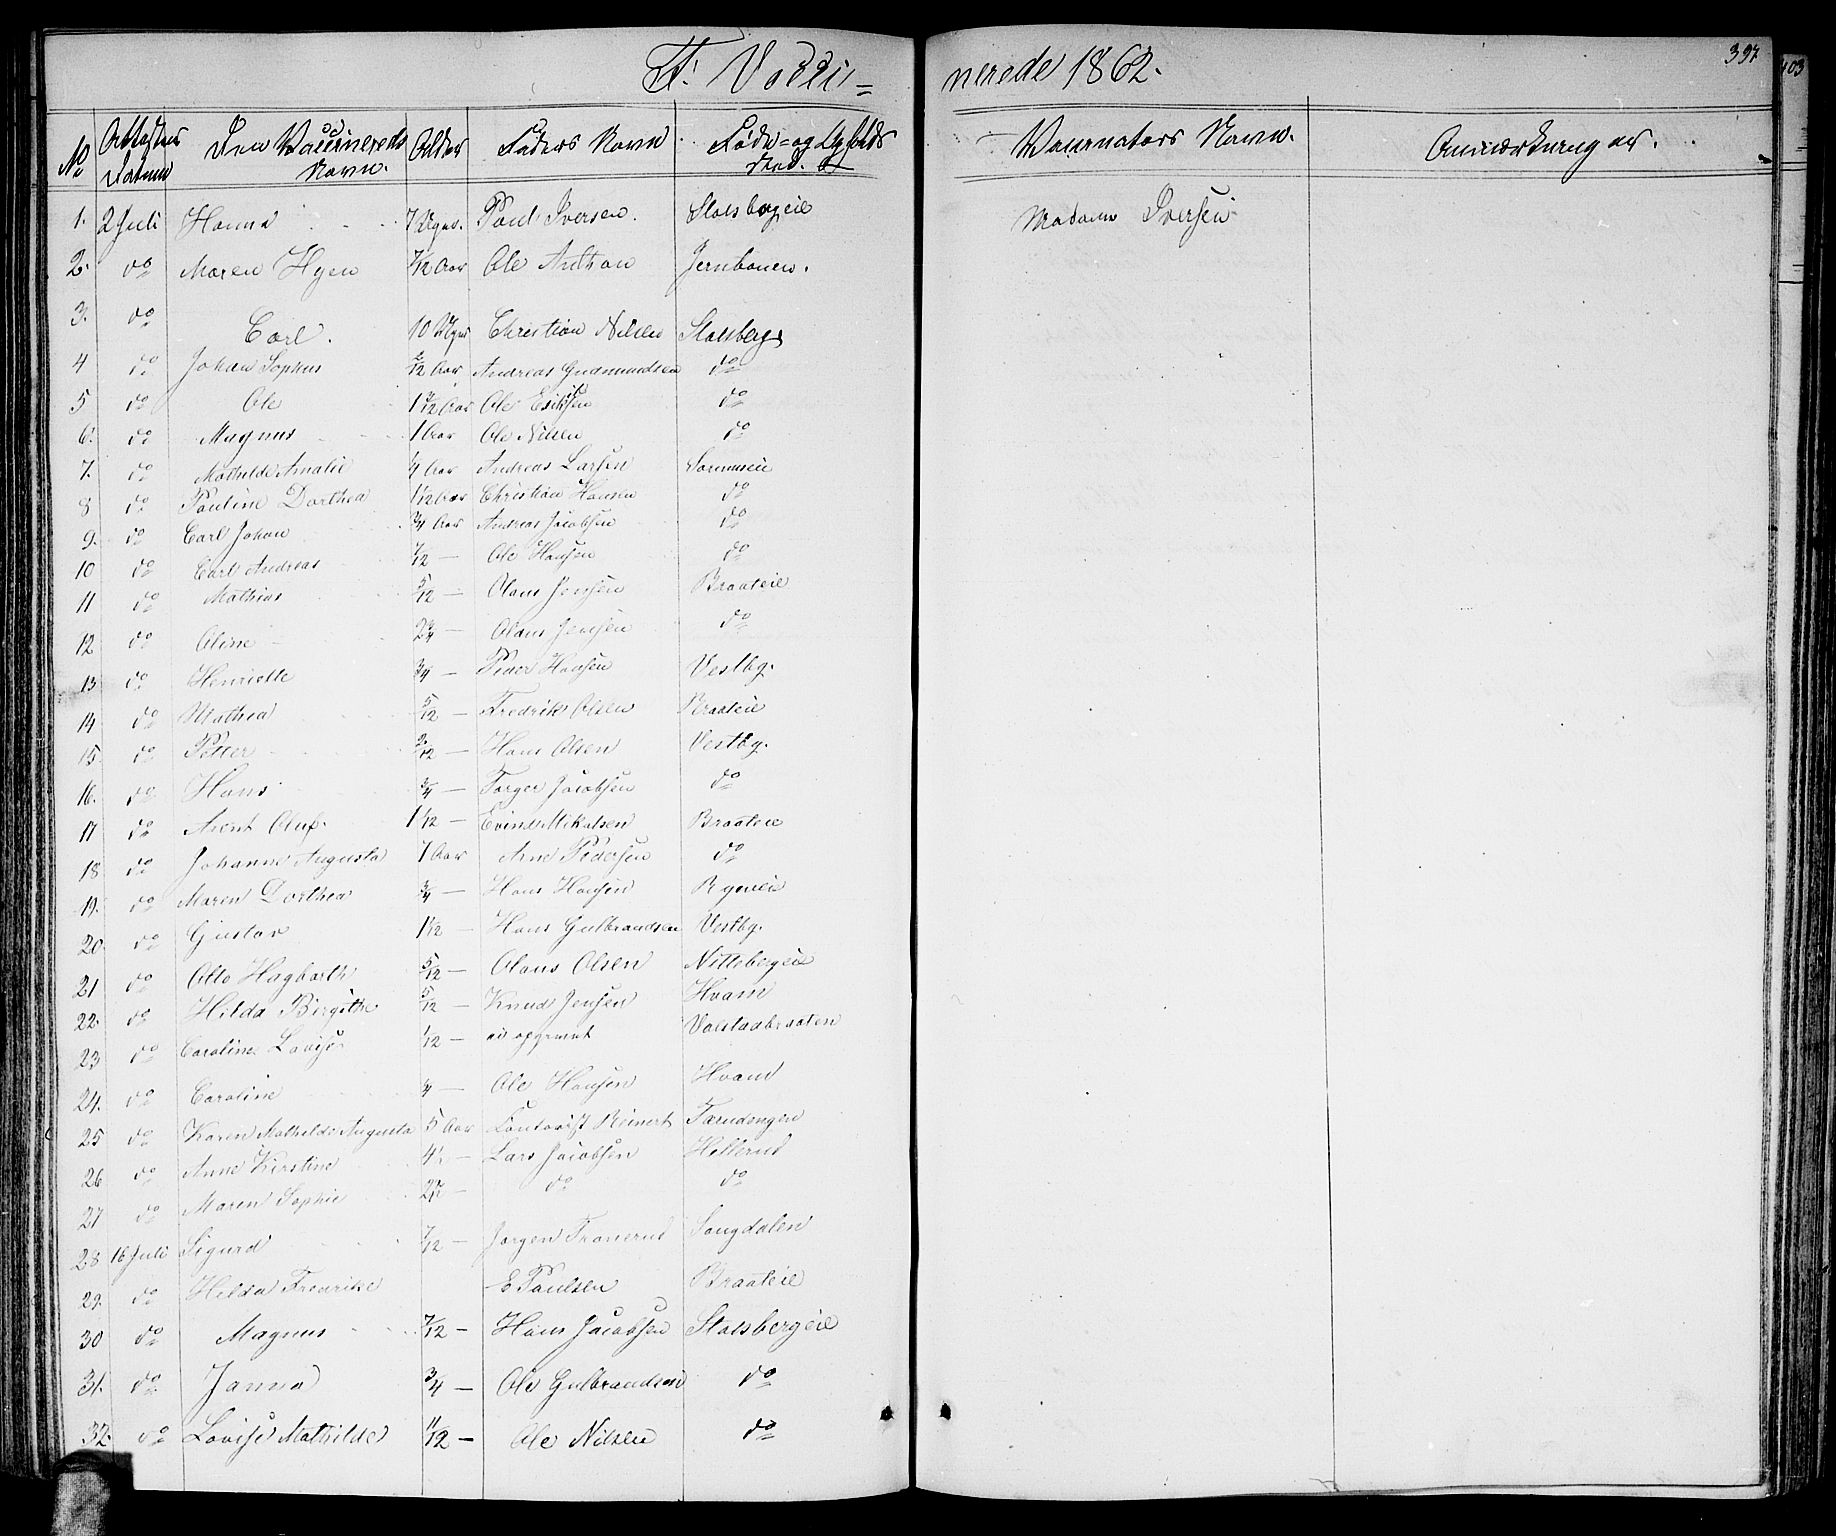 F. Vacci=
nerede 1862.
397
403
No Attestens Datum Den Vaccineredes Navn. Alder Faders Navn Føde- og Opholds Sted.
Vaccinators Navn. Anmærkninger.
1. 2 Juli Hanna 7 Ugur. Paul Iversen. Stalsbergeie Madame Iversen
2. do Maren Hgen 7/12 Aar Ole Anthon Jernbanen.
3. do Carl. 10 Uger Christian Nilsen Stalsberg
4 do Johan Sophus /12 Aar Andreas Gudmundsen do
5 do Ole 1 /12 Aar Ole Eriksen do
6. do Magnus 1 Aar Ole Nilsen do
7. do Mathilde Amalie 1/4 Aar Andreas Larsen
8 do Pauline Dorthea 1 1/12 Aar Christian Hansen do
9. do Carl Johan 3/4 Aar Andreas Jacobsen do
10 do Carl Andreas 7/12 — Ole Hansen do
11 do Mathias 5/12 — Olaus Jensen Braateie
12 do Oline 2 3/4 — Olaus Jensen do
13 do Henriette 3/4 — Peder Hansen Vestbg.
14 do Mathea 5/12 — Fredrik Olsen Braateie
15. do Petter 2/12 — Hans Olsen Vestbg.
16. do Hans 3/4 — Torger Jacobsen do
17 do Arent Oluf. 1 1/12 — Evind Mikalsen Braateie
18 do Johanne Augusta 7 Aar Arne Pedersen do
19. do Maren Dorthea 3/4 — Hans Hansen
20. do Gustav 1 1/12 — Hans Gulbrandsen Vestbg.
21 do Otto Hagbarth 5/12 — Olaus Olsen Nittebergeie
22. do Hilda Birgithe 5/12 — Knud Jensen Hvam
23 do Caroline Lovise 1/12 — ei opgivet Valstadbraaten
24. do Caroline 3/4 — Ole Hansen Hvam
25 do Karen Mathilde Augusta 5 Aar Reinert
26 do Anne Kirstine 4 — Lars Jacobsen Hellerud
27 do Maren Sophie — do do
28 16 Juli Sigurd 7/12 — Jørgen Tranerud Sangdalen
29. do Hilda Fredrike E Paulsen Braateie
30 do Magnus 7/12 — Hans Jacobsen Stalsbergeie
31. do Janna 3/4 — Ole Gulbrandsen do
32. do Lovise Mathilde 11/12 — Ole Nilsen do